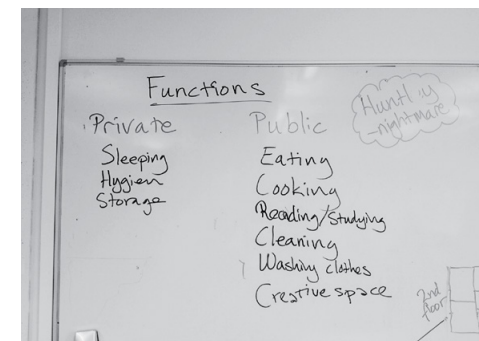 Functions
Private
Sleeping
Hygien
Storage
Public
Eating
Cooking
Reading/Studying
Cleaning
Washing clothes
Creative space
nightmare
2nd
floor